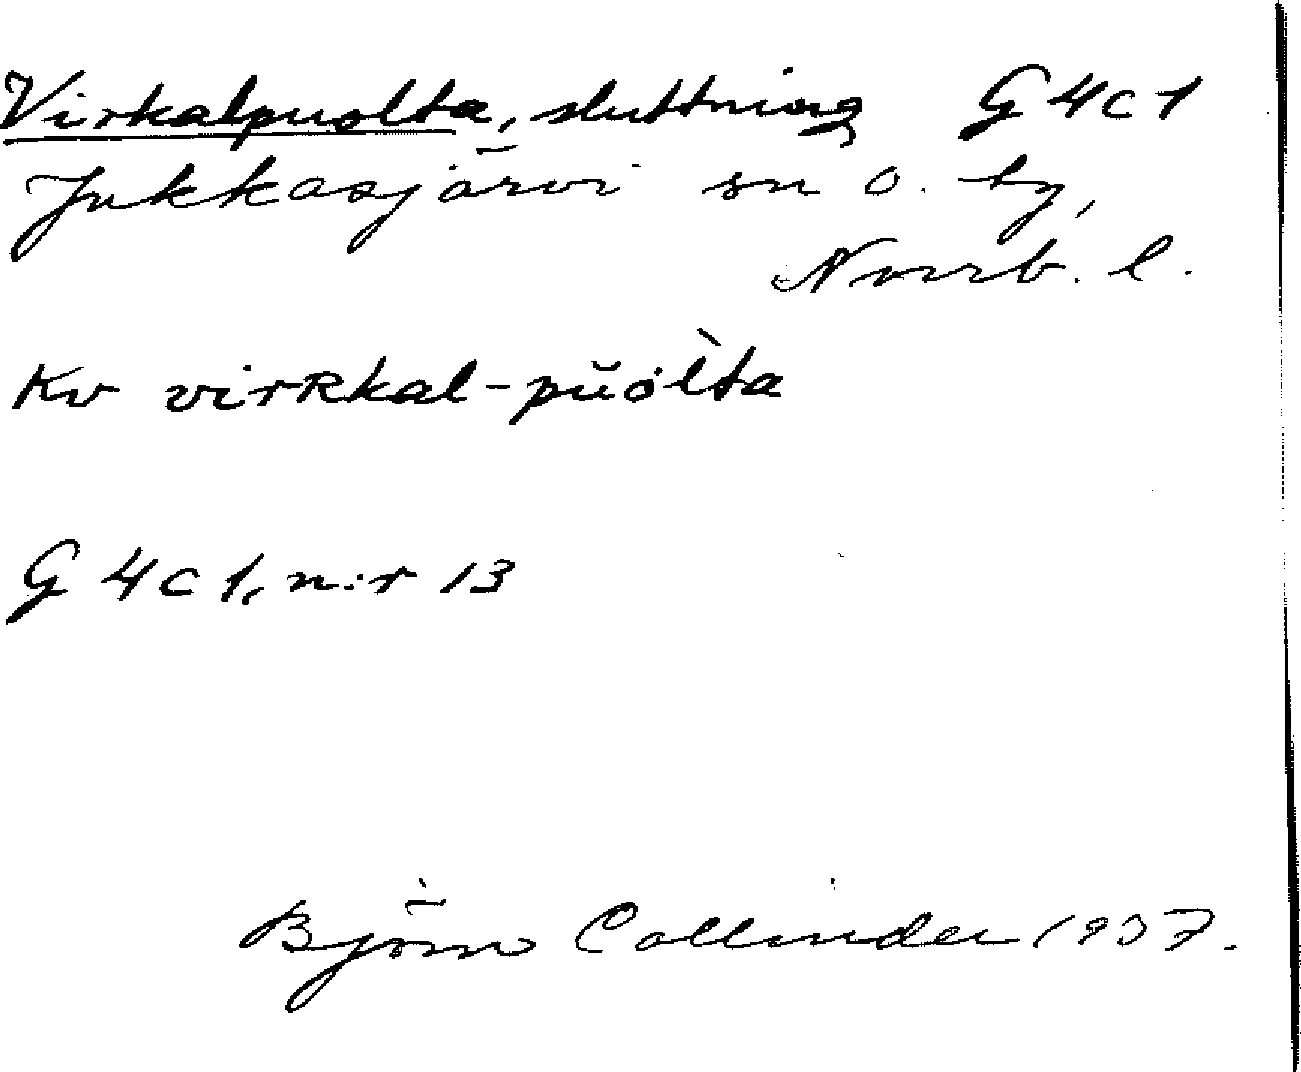 Virkalpuolta, sluttning G 4 c 1
Jukkasjärvi sn o. by,
Norrb. l.
Kv virRkal-pŭòlta
G 4 c 1, n:r 13
Björn Collinder 1937.